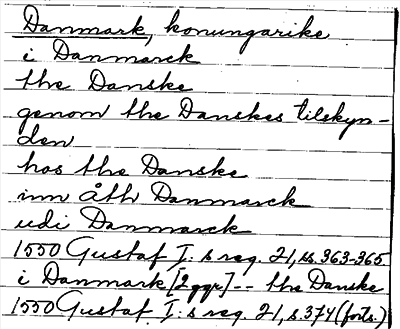 Danmark, konungarike
i Danmarck
the Danske
genom the Danskes tilskyn-
den
hos the Danske
inn åth Danmarck
udi Danmarck
1550 Gustaf I: s reg. 21, ss. 363-365
i Danmark [2 ggr] -- the Danske
1550 Gustaf I: s reg. 21, s. 374 (forts.)